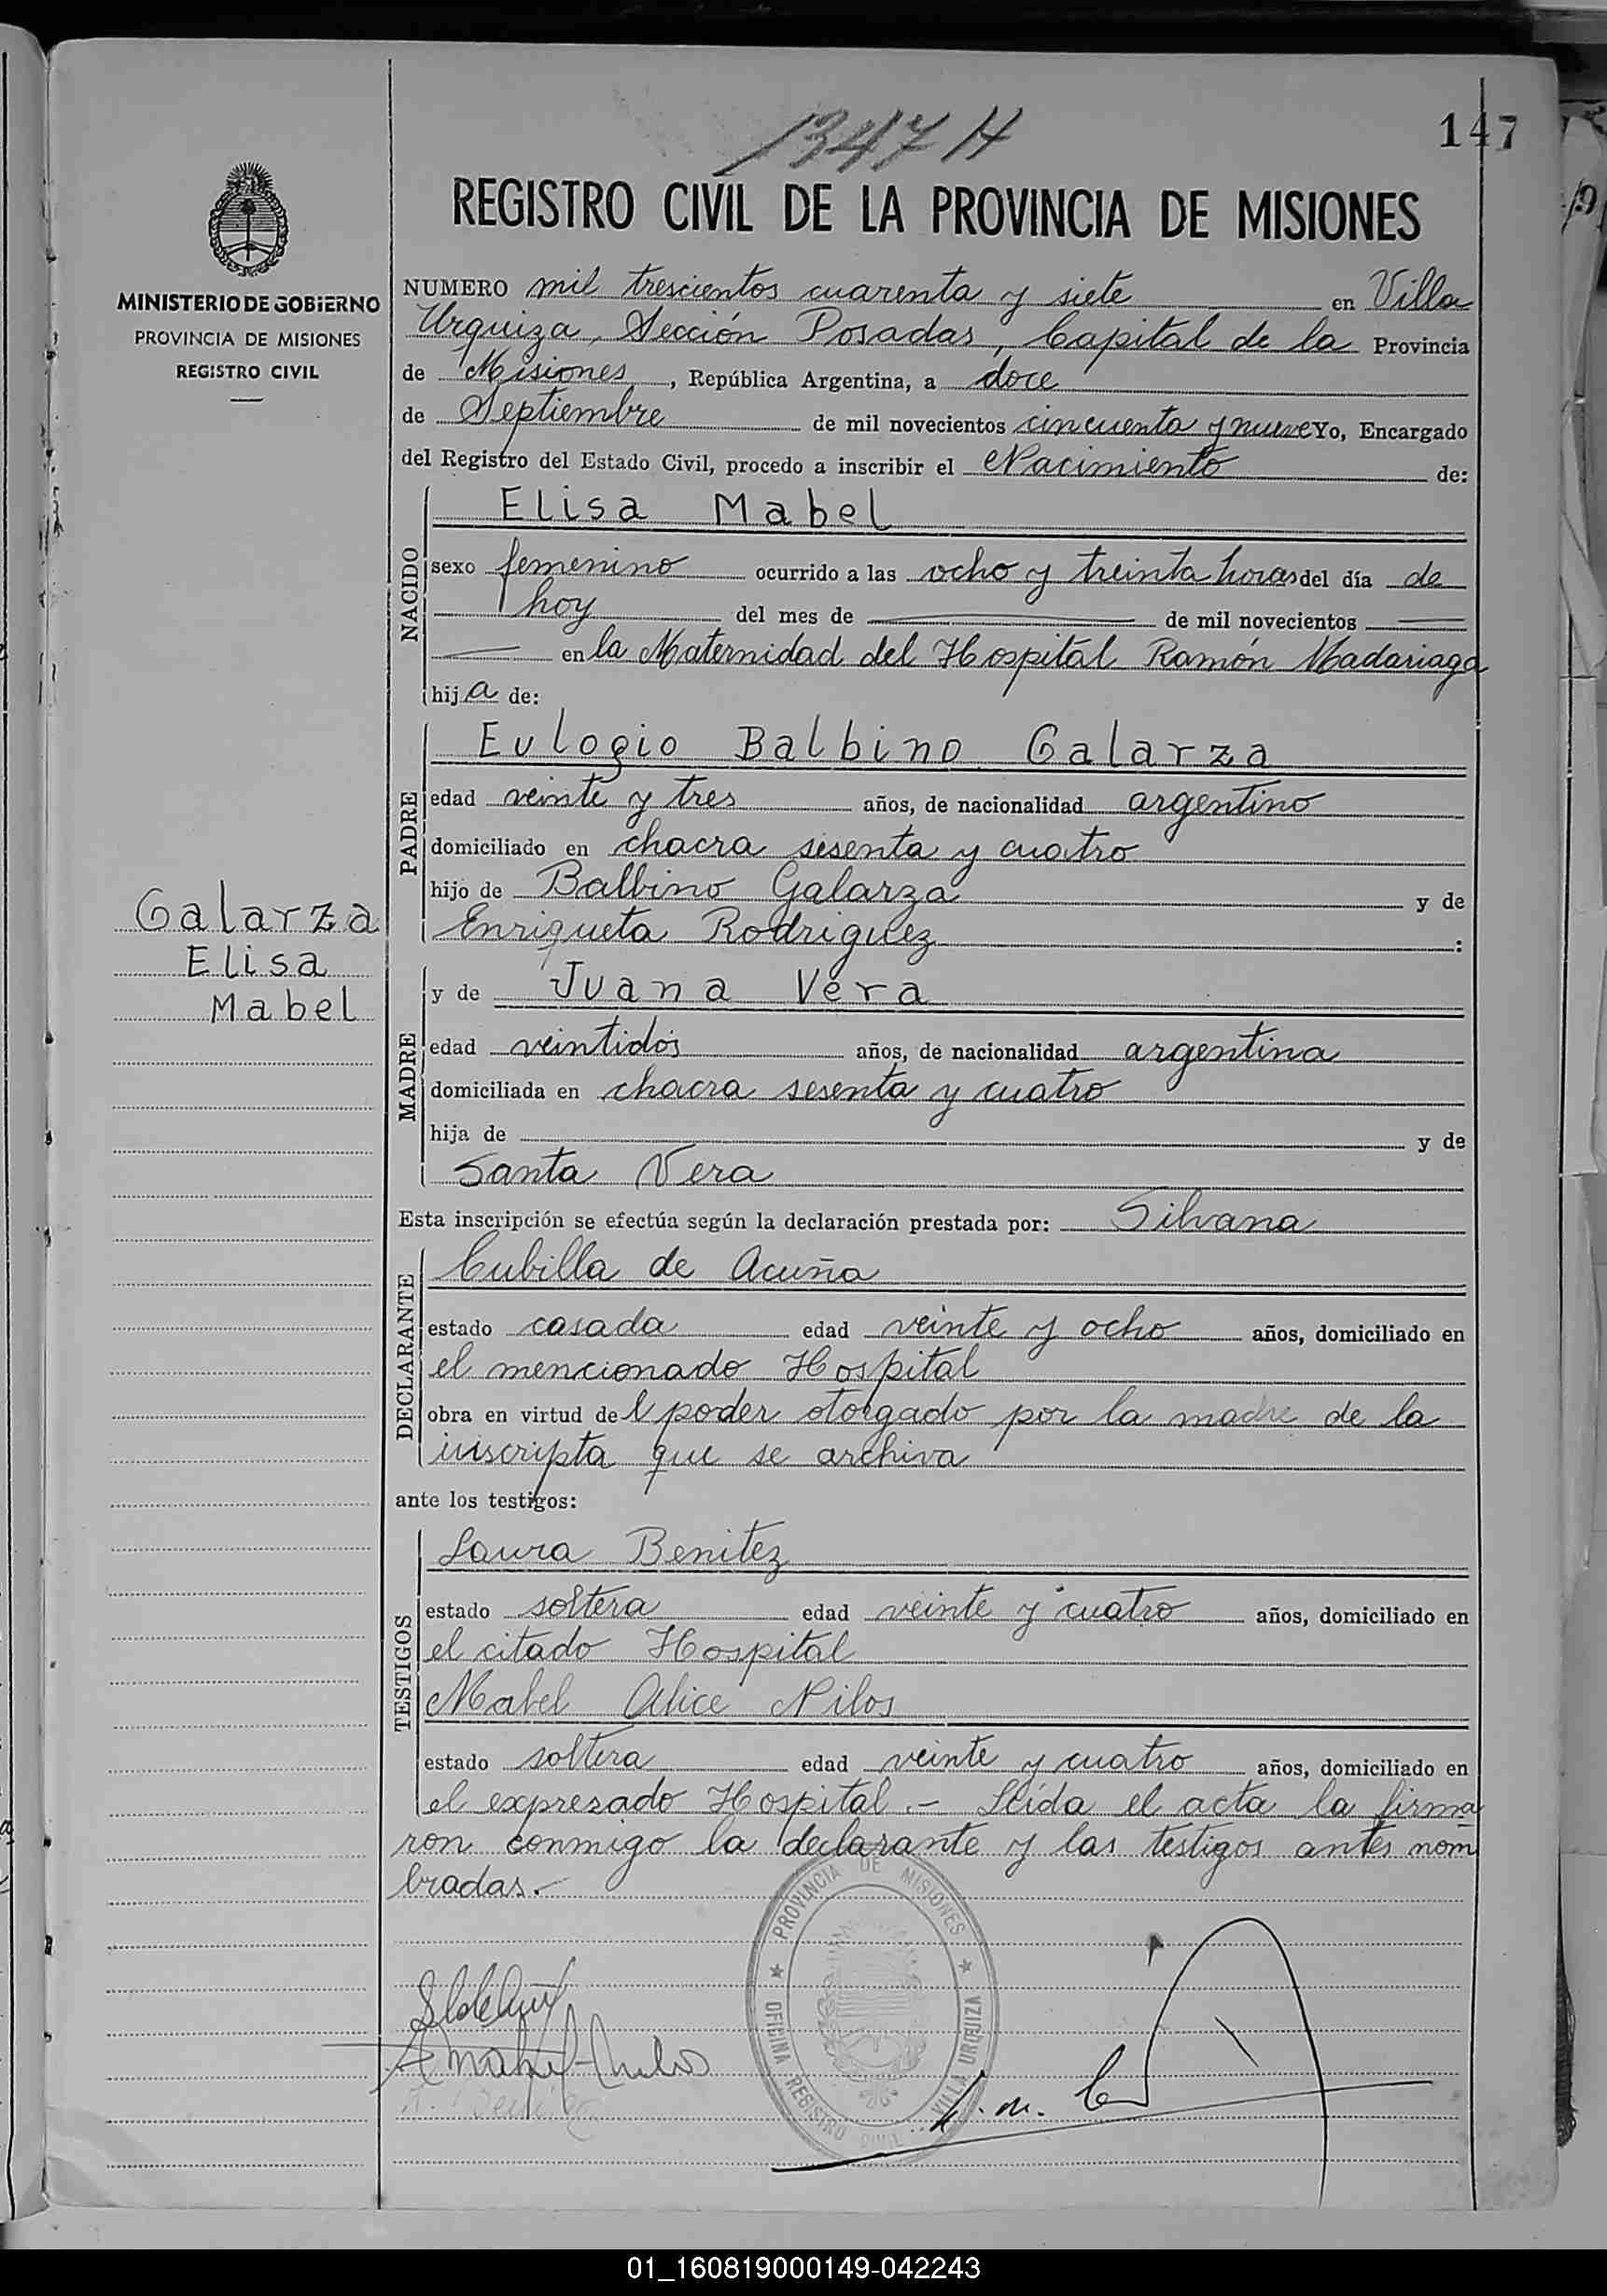 1347 H
147
REGISTRO CIVIL DE LA PROVINCIA DE MISIONES
MINISTERIO DE GOBIERNO
PROVINCIA DE MISIONES
REGISTRO CIVIL
NUMERO mil trescientos cuarenta y siete en Villa
Urquiza, Sección Posadas, Capital de la Provincia
de Misiones, República Argentina, a doce
de Septiembre de mil novecientos cincuenta y nueve Yo, Encargado
del Registro del Estado Civil, procedo a inscribir el Nacimiento de:
NACIDO
Elisa Mabel
sexo femenino ocurrido a las ocho y treinta horas del día de
hoy del mes de de mil novecientos
en la Maternidad del Hospital Ramón Madariaga
hija de:
PADRE
Eulogio Balbino Galarza
edad veinte y tres años, de nacionalidad argentino
domiciliado en chacra sesenta y cuatro
hijo de Balbino Galarza y de
Enriqueta Rodriguez :
Galarza
Elisa
Mabel
MADRE
y de Juana Vera
edad veintidós años, de nacionalidad argentina
domiciliada en chacra sesenta y cuatro
hija de y de
Santa Vera
Esta inscripción se efectúa según la declaración prestada por: Silvana
DECLARANTE
Cubilla de Acuña
estado casada edad veinte y ocho años, domiciliado en
el mencionado Hospital
obra en virtud del poder otorgado por la madre de la
inscripta que se archiva
ante los testigos:
TESTIGOS
Laura Benitez
estado soltera edad veinte y cuatro años, domiciliado en
el citado Hospital
Mabel Alice Nilos
estado soltera edad veinte y cuatro años, domiciliado en
el expresado Hospital.- Leída el acta la firma
ron conmigo la declarante y las testigos antes nom
bradas.-
PROVINCIA DE MISIONES
OFICINA REGISTRO CIVIL VILLA URQUIZA
01_160819000149-042243